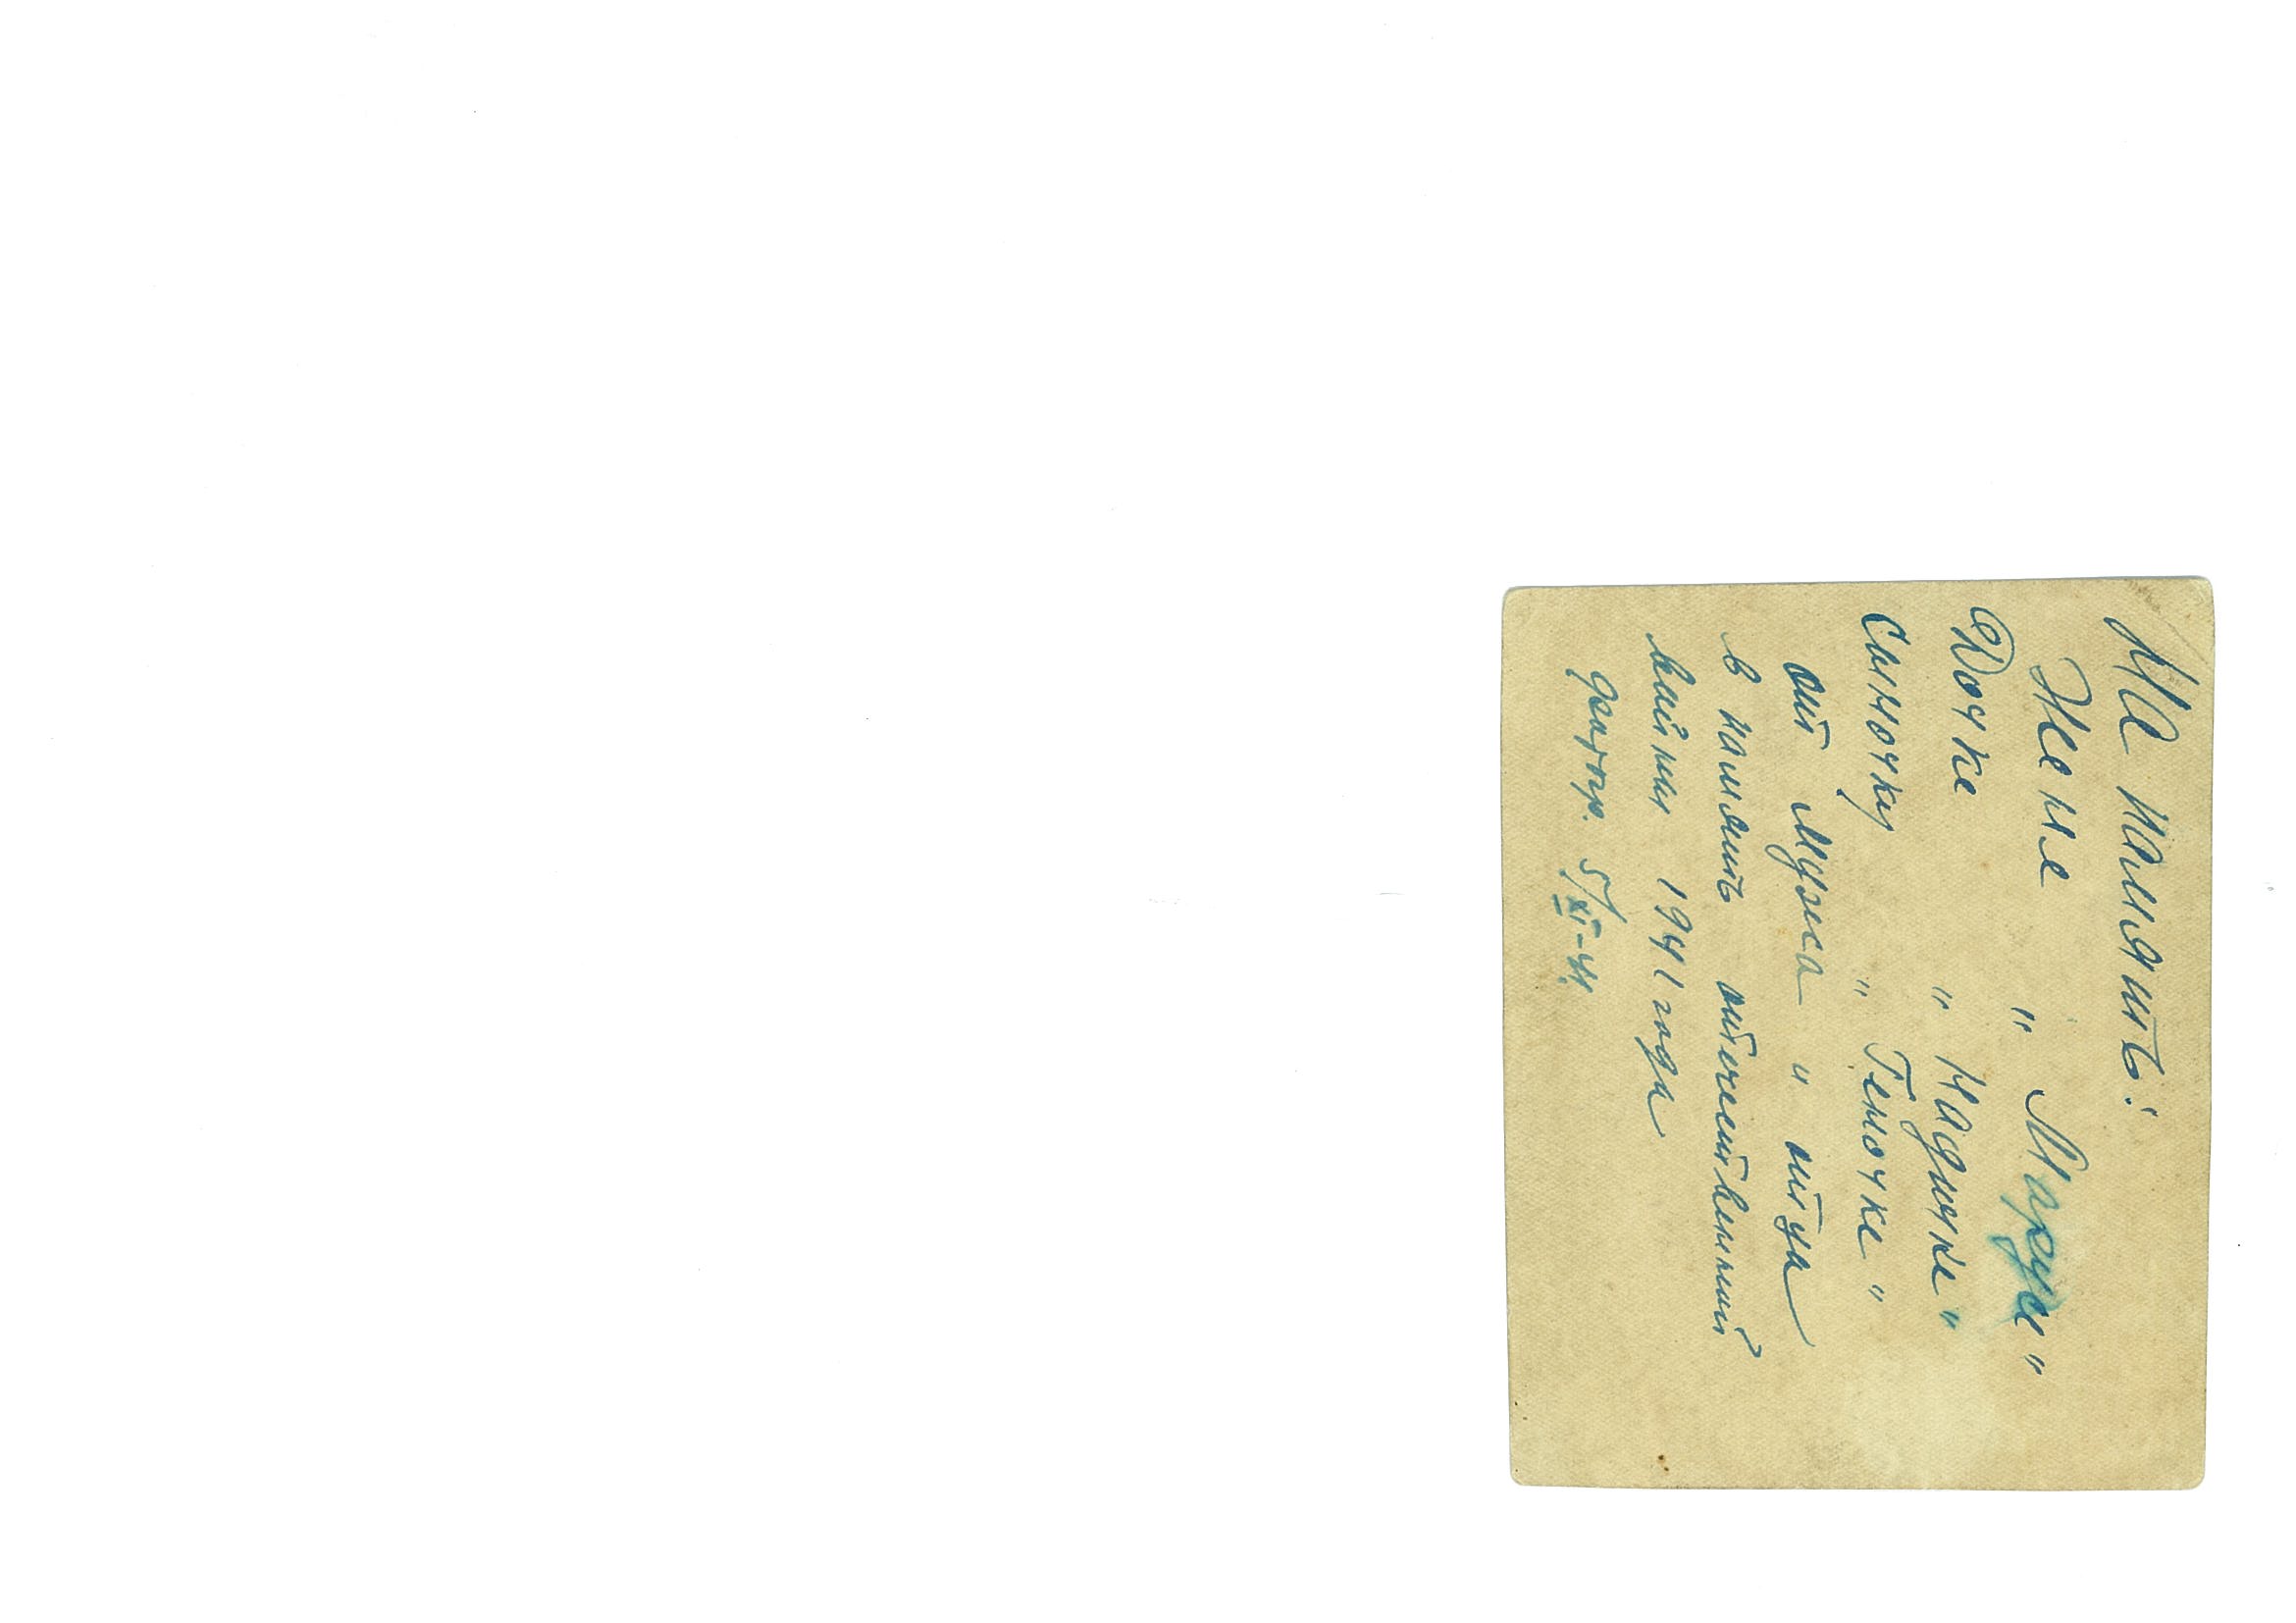 На память!
Жене " Марусе "
Дочке " Надичке "
Сыночку " Геночке "
от Мужа и отца
в память отечественной
войны 1941 года
фотогр. 5/XI-41.